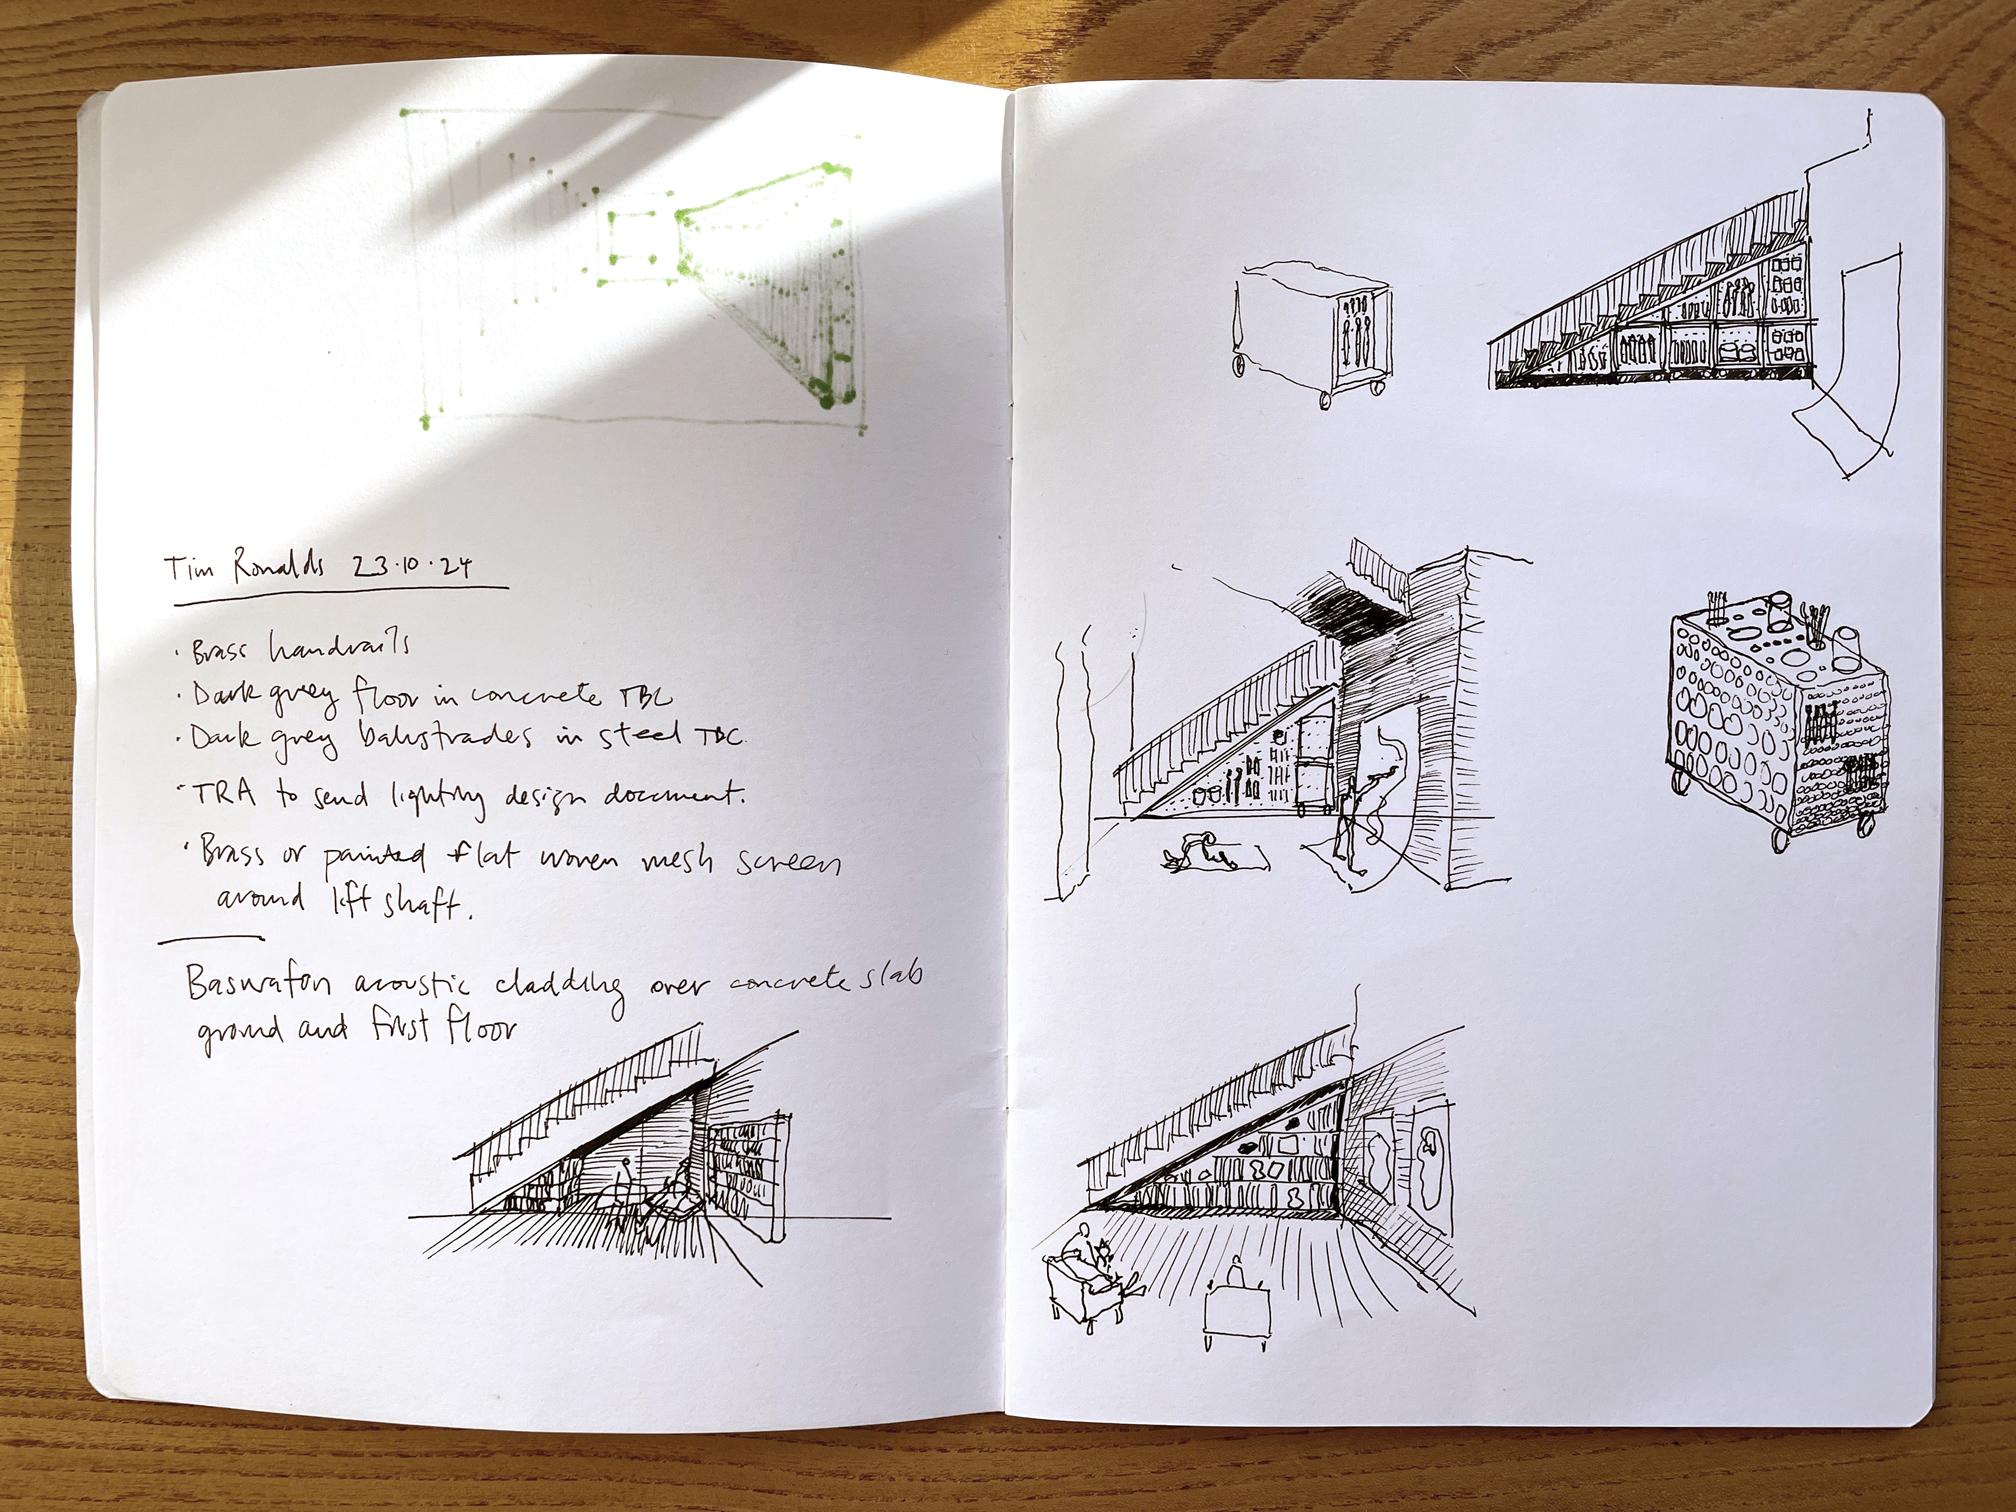 Tim Ronalds 23.10.24
· Brass handrails
· Dark grey floor in concrete TBC
· Dark grey balustrades in steel TBC.
· TRA to send lighting design document.
· Brass or painted flat woven mesh screen
around lift shaft.
Baswafon acoustic cladding over concrete slab
ground and first floor